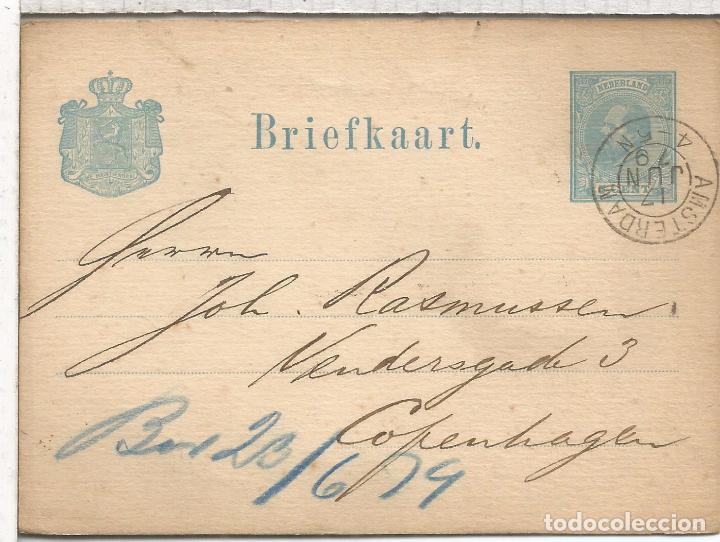 NEDERLAND
Briefkaart.
CENT
AMSTERDAM
17 JUN 79
4-5N
Herrn
Joh. Rasmussen
Vendersgade 3
Copenhagen
23/6 79
todocoleccion.net